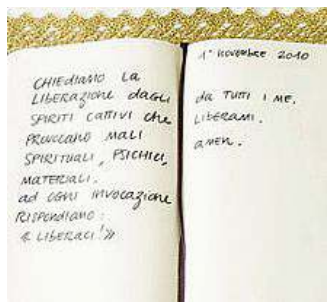 CHIEDIAMO LA
LIBERAZIONE DAGLI
SPIRITI CATTIVI CHE
PROVOCANO MALI
SPIRITUALI, PSICHICI,
MATERIALI.
AD OGNI INVOCAZIONE
RISPONDIAMO:
« LIBERACI!»
1° NOVEMBRE 2010
DA TUTTI I ME.
LIBERAMI.
AMEN.